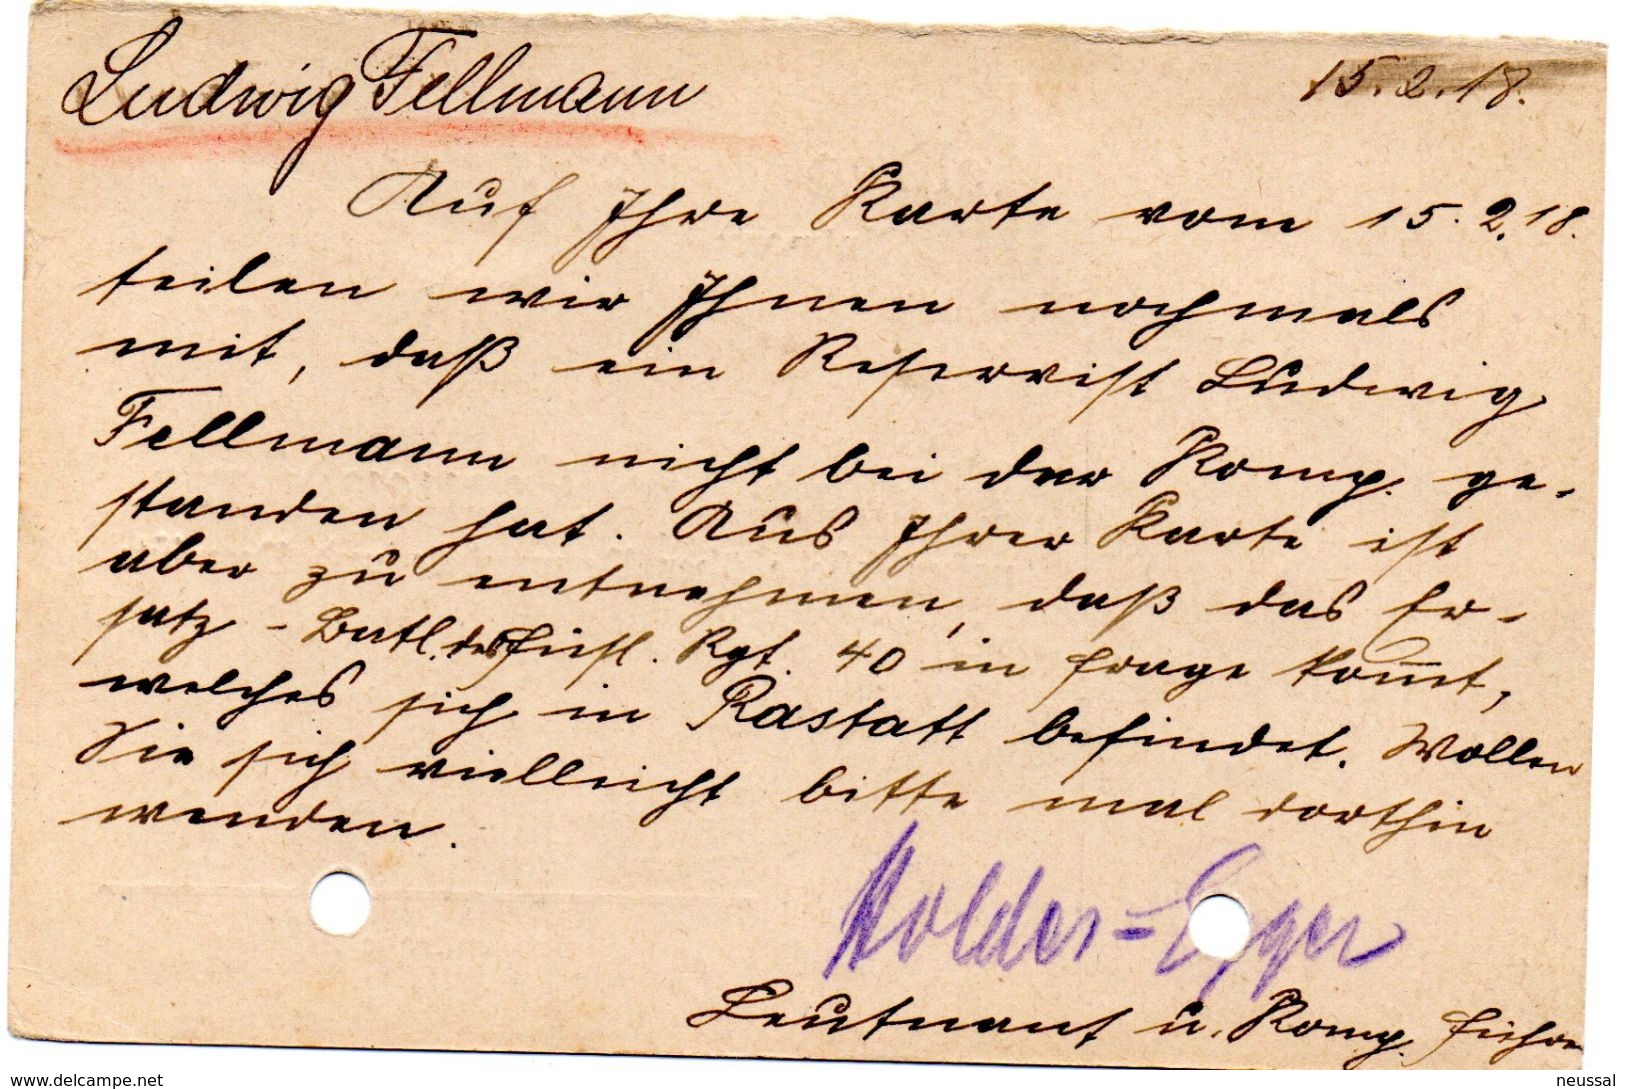 Ludwig Fellmann
15.2.18.
Auf Ihre Karte vom 15.2.18.
teilen wir Ihnen nochmals
mit, daß ein Reservist Ludwig
Fellmann nicht bei der Komp. ge-
standen hat. Aus Ihrer Karte ist
aber zu entnehmen, daß das Er-
satz-Batl. des Füsl. Rgt. 40 in Frage kom̄t,
welches sich in Rastatt befindet. Wollen
Sie sich vielleicht bitte mal dorthin
wenden.
Holder=Egger
Leutnant u. Komp. Führer
delcampe.net
neussal